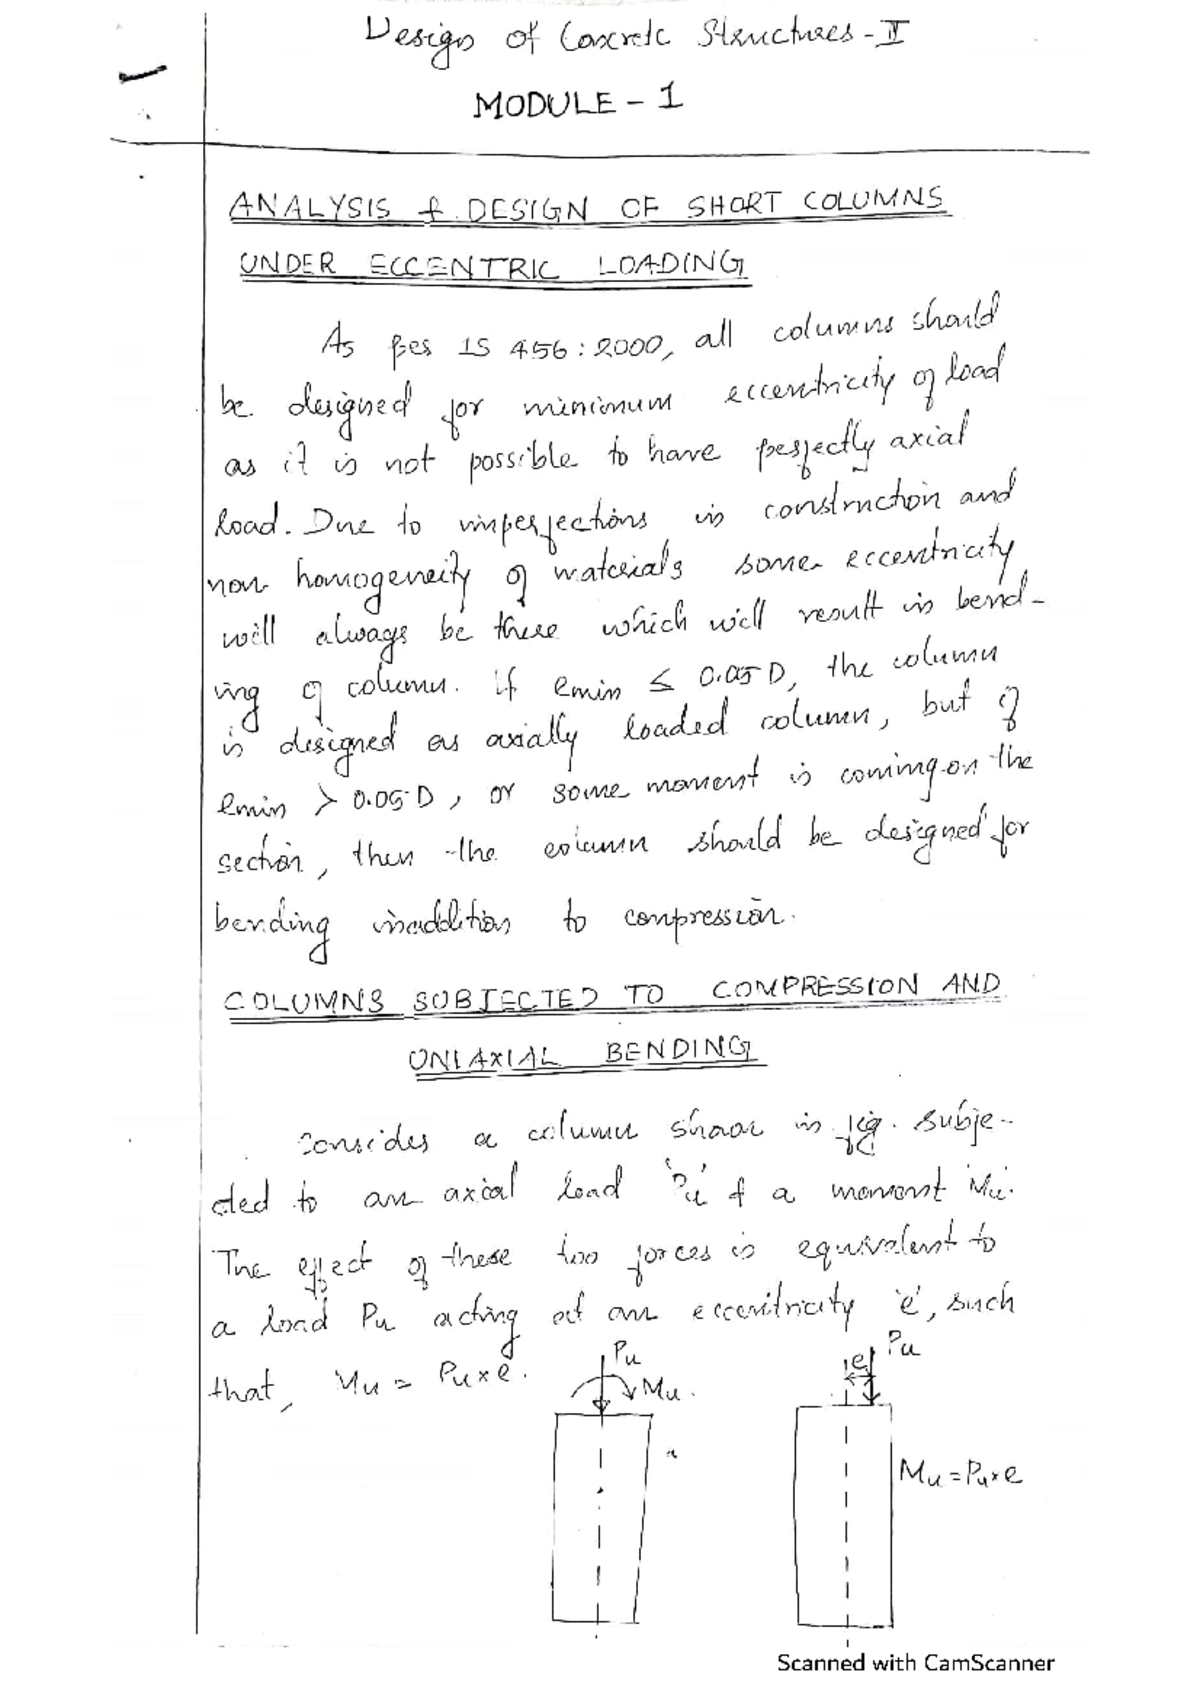 Design of Concrete Structures - II
MODULE - 1
ANALYSIS & DESIGN OF SHORT COLUMNS
UNDER ECCENTRIC LOADING
As per IS 456 : 2000, all columns should
be designed for minimum eccentricity of load
as it is not possible to have perfectly axial
load. Due to imperfections in construction and
non homogeneity of materials some eccentricity
will always be there which will result in bend-
ing of column. If emin ≤ 0.05 D, the column
is designed as axially loaded column, but if
emin > 0.05 D, or some moment is coming on the
section, then the column should be designed for
bending inaddition to compression.
COLUMNS SUBJECTED TO COMPRESSION AND
UNIAXIAL BENDING
Consider a column shown in fig. subje-
cted to an axial load 'Pu' & a moment 'Mu'.
The effect of these two forces is equivalent to
a load Pu acting at an eccentricity 'e', such
that, Mu = Pu x e.
Pu
Mu.
e
Pu
Mu = Pu x e
Scanned with CamScanner